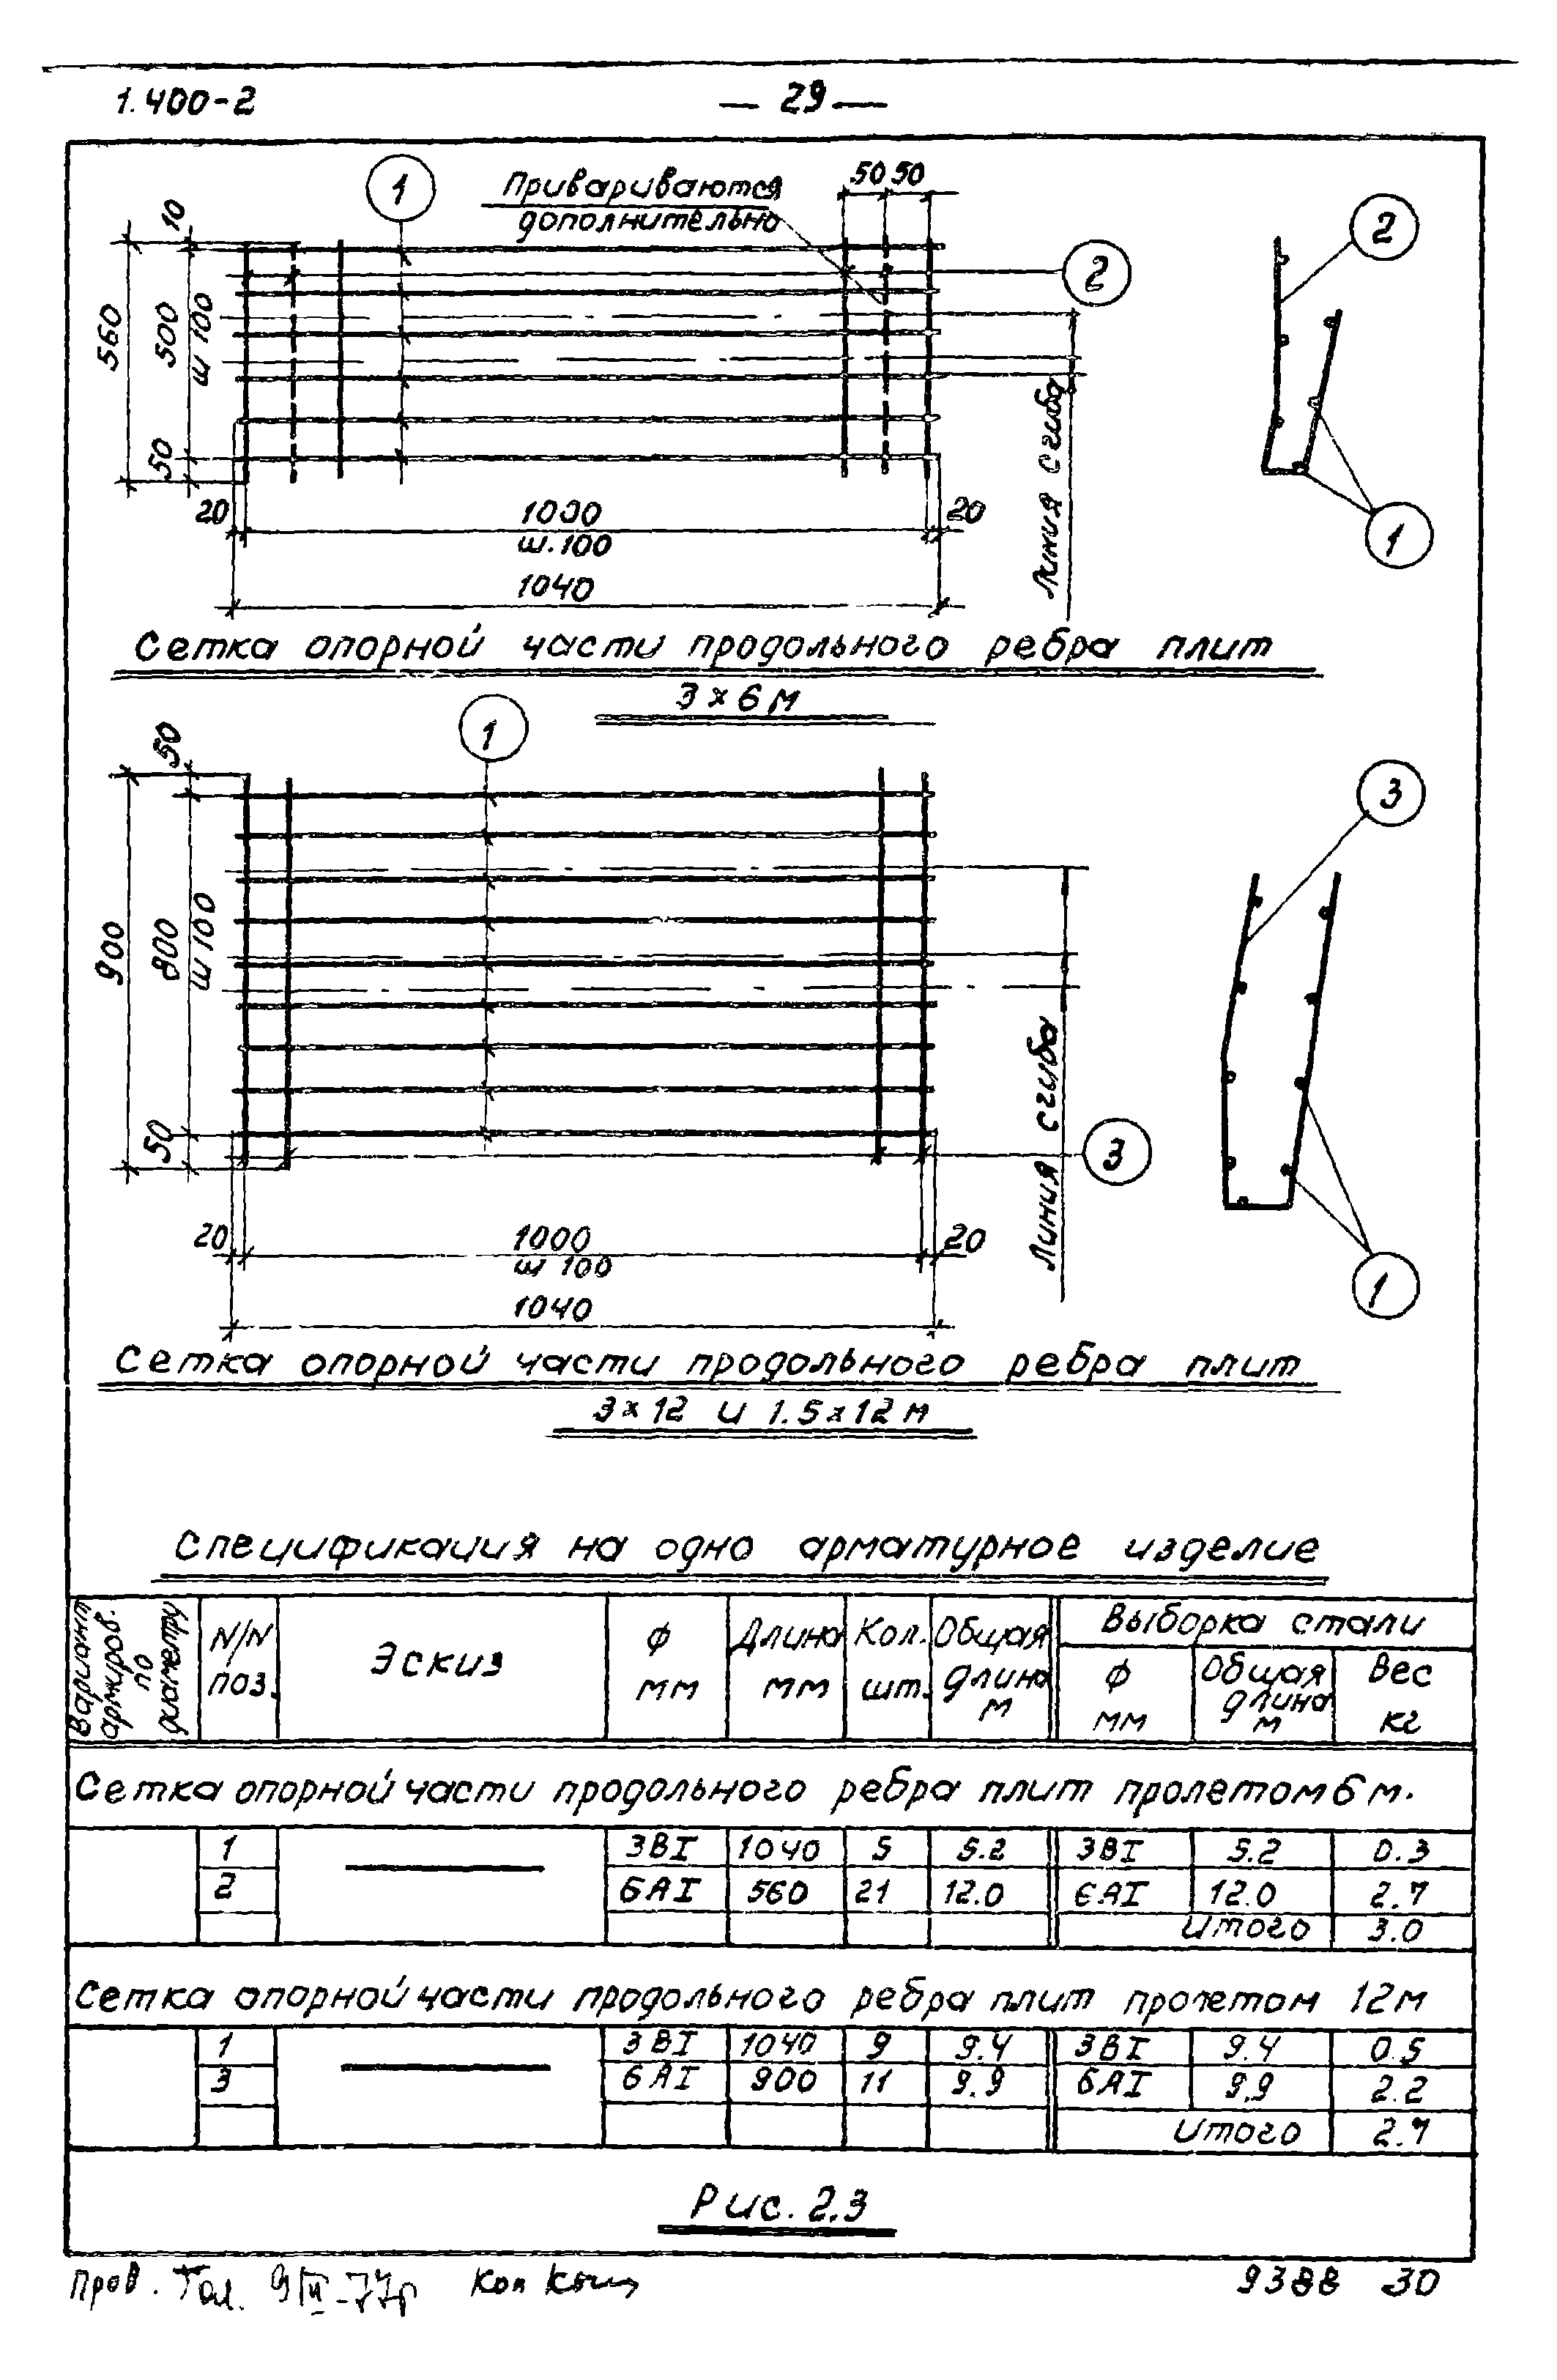 1.400-2
— 29 —
1
Привариваются
дополнительно
50 50
2
2
10
560
500
ш 100
50
20
1000
ш.100
20
1040
Линия сгиба
1
Сетка опорной части продольного ребра плит
3×6 м
1
50
3
900
800
ш 100
50
Линия сгиба
3
20
1000
ш 100
20
1040
1
Сетка опорной части продольного ребра плит
3×12 и 1.5×12 м
Спецификация на одно арматурное изделие
Вариант армиров. по диаметру
N/N поз.
Эскиз
Ф мм
Длина мм
Кол. шт.
Общая длина м
Выборка стали
Ф мм
Общая длина м
Вес кг
Сетка опорной части продольного ребра плит пролетом 6 м.
1 3ВI 1040 5 5.2 3ВI 5.2 0.3
2 6АI 560 21 12.0 6АI 12.0 2.7
Итого 3.0
Сетка опорной части продольного ребра плит пролетом 12м
1 3ВI 1040 9 9.4 3ВI 9.4 0.5
3 6АI 900 11 9.9 6АI 9.9 2.2
Итого 2.7
Рис. 2.3
Пров. Коп
9388 30